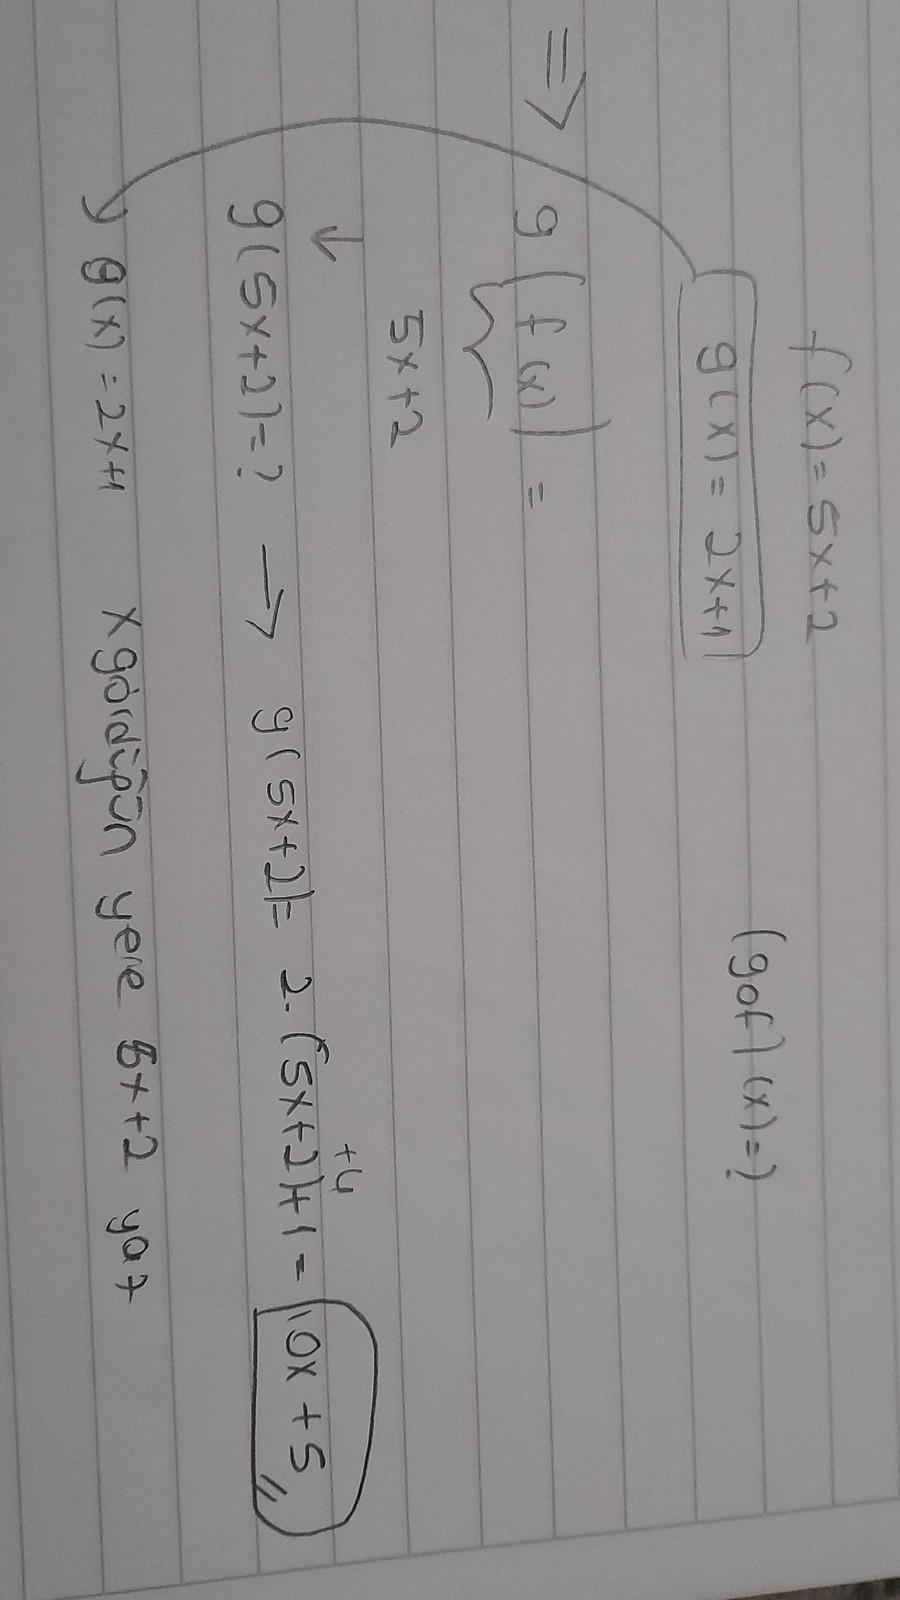 f(x) = 5x+2
g(x) = 2x+1 (gof)(x)=?
⇒ g(f(x)) =
5x+2
↓
g(5x+2)=? → g(5x+2)= 2.(5x+2)+1 = 10x + 5
+4
g(x) = 2x+1 x gördüğün yere 5x+2 yaz